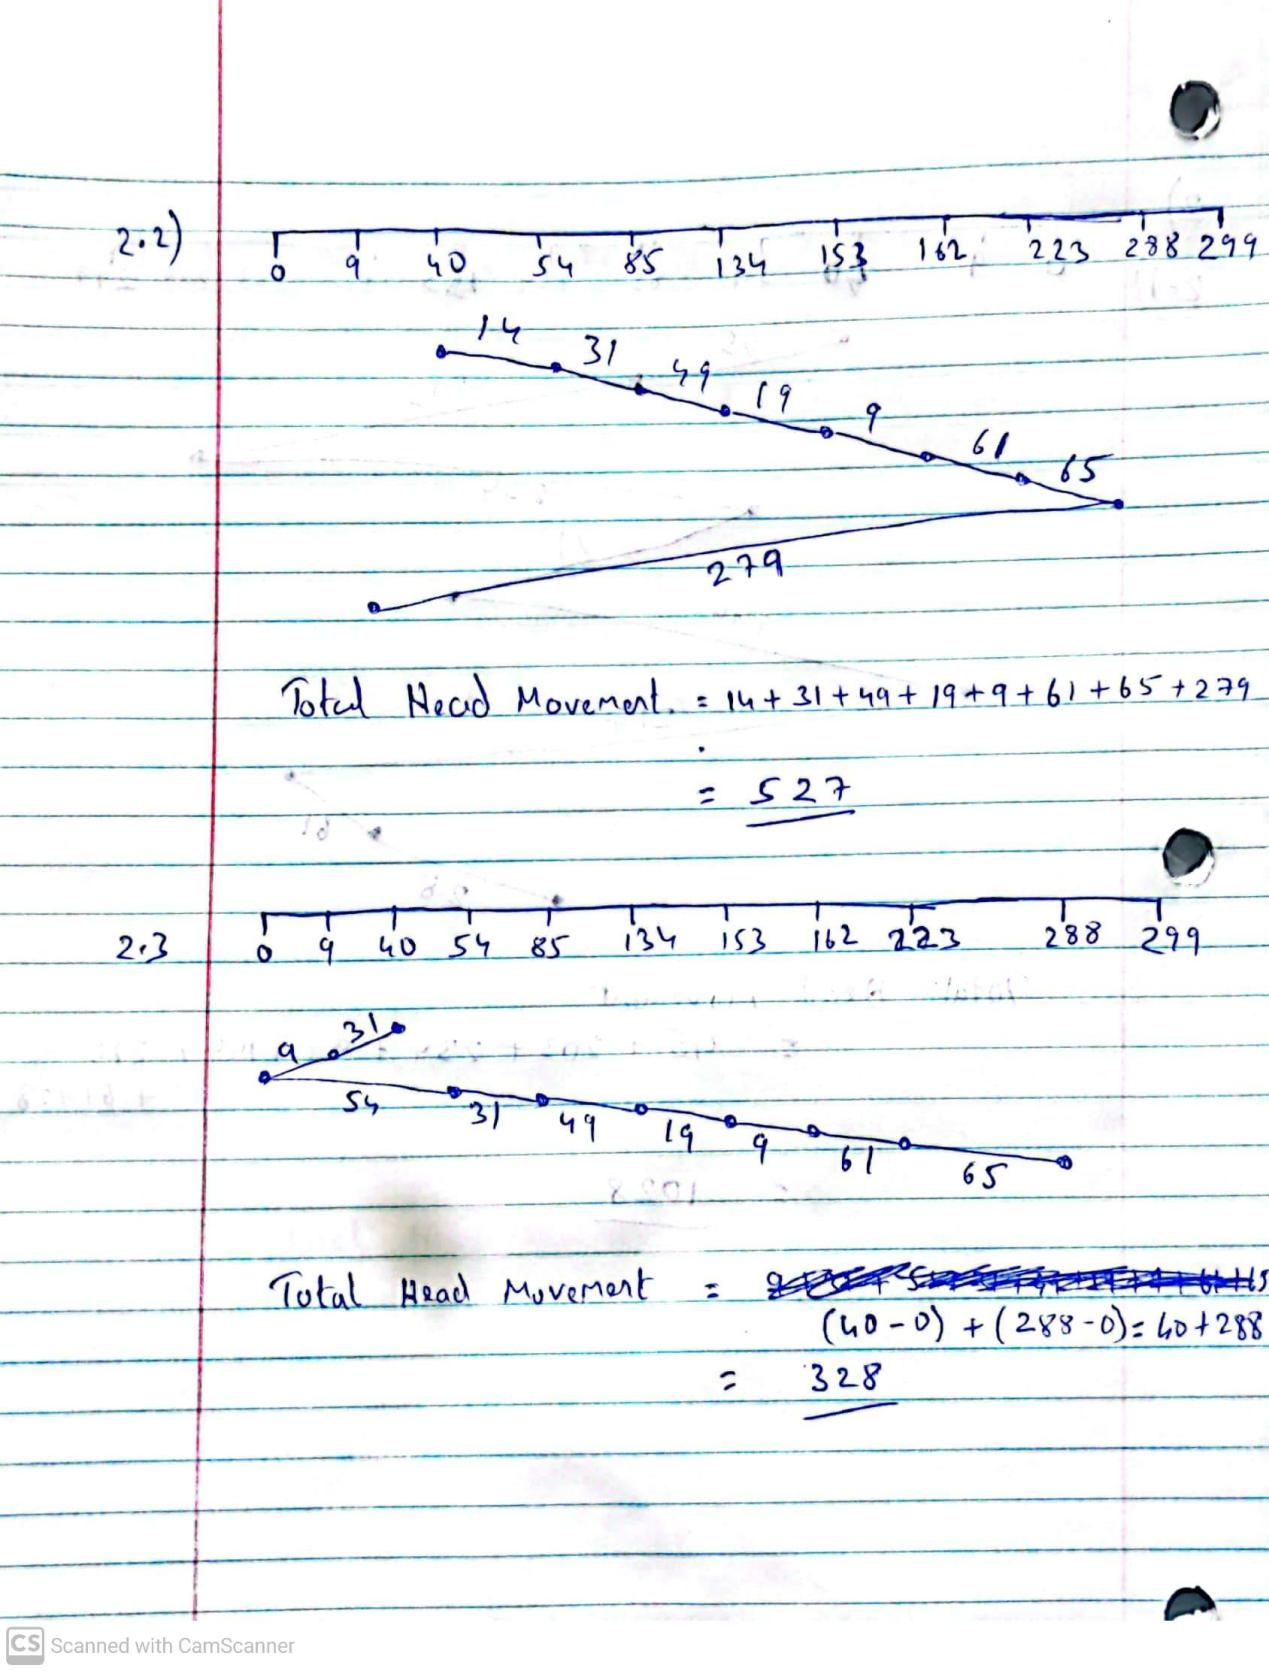 2.2)
0 9 40 54 85 134 153 162 223 288 299
14 31 49 19 9 61 65
279
Total Head Movement. = 14+31+49+19+9+61+65+279
= 527
2.3
0 9 40 54 85 134 153 162 223 288 299
9 31
54 31 49 19 9 61 65
Total Head Movement =
(40-0)+(288-0)=40+288
= 328
CS Scanned with CamScanner